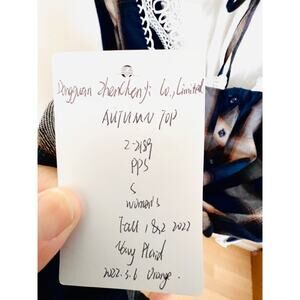 Dongguan Zhenchenyi Co., Limited
AUTUMN TOP
2-2189
PPS
S
women's
Fall 1&2 2022
Navy Plaid
2022.5.6 Orange.